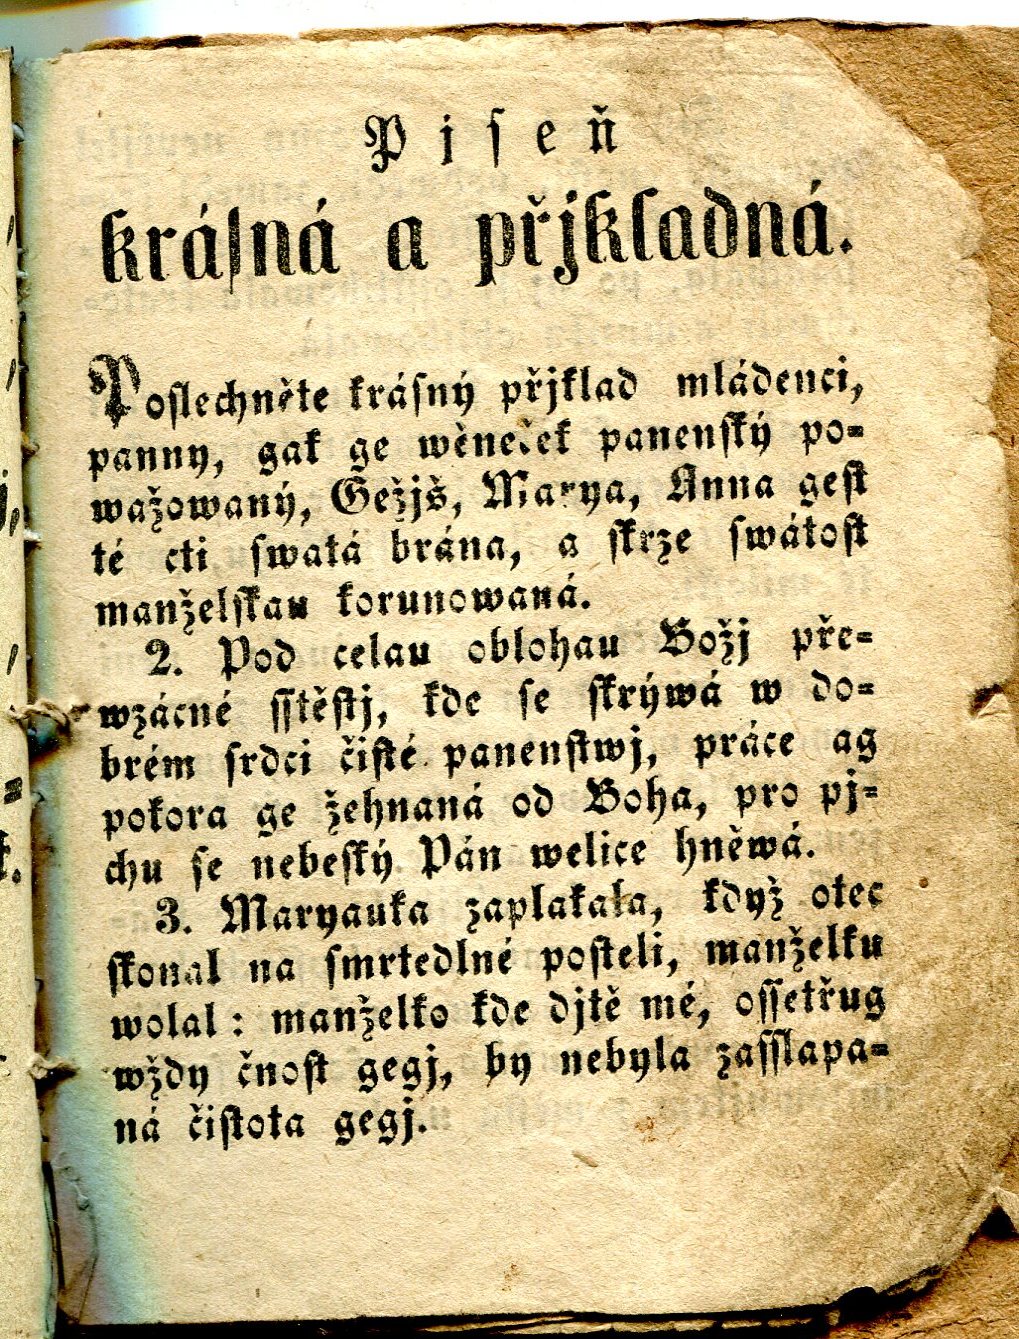 Pjſeň
kráſná a přjkladná.
Poſlechněte kráſný přjklad mládenci,
panny, gak ge wěneček panenſký po=
wažowaný, Gežjš, Marya, Anna geſt
té cti ſwatá brána, a ſkrze ſwátoſt
manželſkau korunowaná.
2. Pod celau oblohau Božj pře=
wzácné ſſtěſtj, kde ſe ſkrýwá w do=
brém ſrdci čiſté panenſtwj, práce ag
pokora ge žehnaná od Boha, pro pj=
chu ſe nebeſký Pán welice hněwá.
3. Maryauka zaplakala, když otec
ſkonal na ſmrtedlné poſteli, manželku
wolal: manželko kde djtě mé, oſſetřug
wždy čnoſt gegj, by nebyla zaſſlapa=
ná čiſtota gegj.